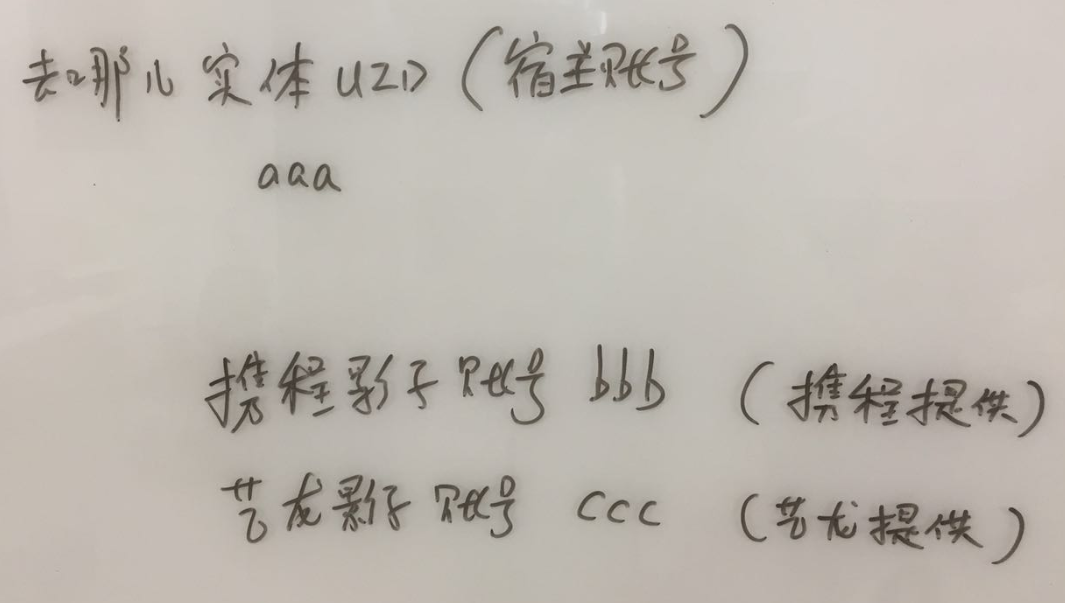 去哪儿 实体 UID (宿主账号)
aaa
携程影子账号 bbb (携程提供)
艺龙影子账号 ccc (艺龙提供)